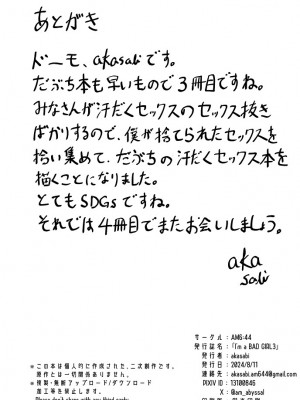 あとがき
ドーモ、akasabiです。
だぶち本も早いもので3冊目ですね。
みなさんが汗だくセックスのセックス抜き
ばかりするので、僕が捨てられたセックスを
拾い集めて、だぶちの汗だくセックス本を
描くことになりました。
とてもSDGsですね。
それでは4冊目でまたお会いしましょう。
aka
sabi
サークル：AM6:44
発行誌名：「I'm a BAD GIRL3」
発行者：akasabi
発行日：2024/8/11
連絡先：akasabi.am644@gmail.com
PIXIV ID：13100846
X：@am_abyssal
※この本は個人的に作成された、二次創作です。
原作とは一切関係ありません。
※複製・無断アップロード/ダウンロード
加工等を禁止します。